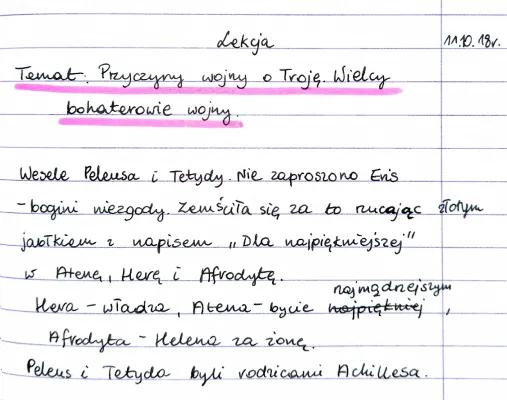 Lekcja 11.10.18r.
Temat: Przyczyny wojny o Troję. Wielcy
bohaterowie wojny.
Wesele Peleusa i Tetydy. Nie zaproszono Eris
- bogini niezgody. Zemściła się za to rzucając złotym
jabłkiem z napisem „Dla najpiękniejszej"
w Atenę, Herę i Afrodytę.
najmądrzejszym
Hera - władza, Atena - bycie najpiękniej,
Afrodyta - Helena za żonę.
Peleus i Tetyda byli rodzicami Achillesa.